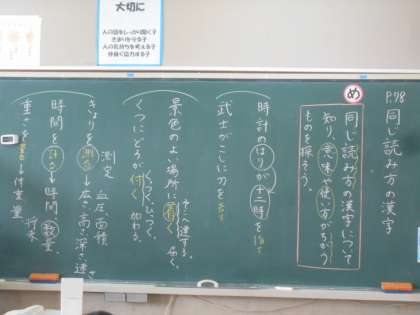 大切に
人の話をしっかり聞く子
きまりを守る子
人の気持ちを考える子
仲良く協力する子
P.98 同じ読み方の漢字
め
同じ読み方の漢字について
知り、意味や使い方がちがう
ものを探そう。
時計のはりが十二時を
武士がこしに刀を
景色のよい場所に着く
そこへ達する。届く。
くつにどろが付く
くっつく、ひっつく。
加わる。
きょりを測る→広さ高さ深さ速さ
測定 血圧 面積
時間を計る→時間、数量、
重さを→体重 量